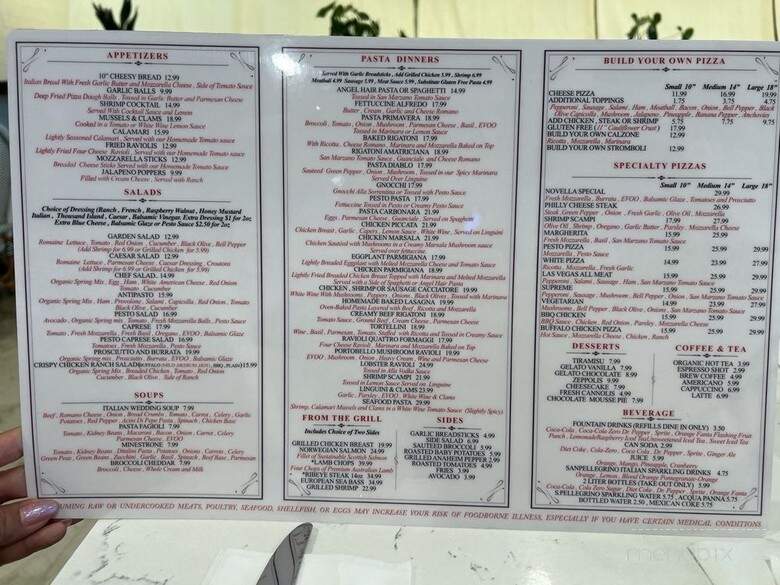 APPETIZERS
10" CHEESY BREAD 12.99
Italian Bread With Fresh Garlic Butter and Mozzarella Cheese , Side of Tomato Sauce
GARLIC BALLS 9.99
Deep Fried Pizza Dough Balls , Tossed in Garlic Butter and Parmesan Cheese
SHRIMP COCKTAIL 14.99
Served With Cocktail Sauce and Lemon
MUSSELS & CLAMS 18.99
Cooked in a Tomato or White Wine Lemon Sauce
CALAMARI 15.99
Lightly Seasoned Calamari , Served with our Homemade Tomato sauce
FRIED RAVIOLIS 12.99
Lightly Fried Four Cheese Ravioli , Served with our Homemade Tomato sauce
MOZZARELLA STICKS 12.99
Breaded Cheese Sticks Served with our Homemade Tomato Sauce
JALAPENO POPPERS 9.99
Filled with Cream Cheese , Served with Ranch
SALADS
Choice of Dressing (Ranch , French , Raspberry Walnut , Honey Mustard
Italian , Thousand Island , Caesar , Balsamic Vinegar, Extra Dressing $1 for 2oz,
Extra Blue Cheese , Balsamic Glaze or Pesto Sauce $2.50 for 2oz)
GARDEN SALAD 12.99
Romaine Lettuce , Tomato , Red Onion , Cucumber , Black Olive , Bell Pepper
(Add Shrimp for 6.99 or Grilled Chicken for 5.99)
CAESAR SALAD 12.99
Romaine Lettuce , Parmesan Cheese , Caesar Dressing , Croutons
(Add Shrimp for 6.99 or Grilled Chicken for 5.99)
CHEF SALAD 14.99
Organic Spring Mix , Egg , Ham , White American Cheese , Red Onion
Tomato , Cucumber
ANTIPASTO 15.99
Organic Spring Mix , Ham , Provolone , Salami , Capicolla , Red Onion , Tomato
Black Olive , Cucumber
PESTO SALAD 16.99
Avocado , Organic Spring mix , Tomato , Fresh Mozzarella Balls , Pesto Sauce
CAPRESE 17.99
Tomato , Fresh Mozzarella , Fresh Basil , Oregano , EVOO , Balsamic Glaze
PESTO CAPRESE SALAD 16.99
Tomatoes , Fresh Mozzarella , Pesto Sauce
PROSCIUTTO AND BURRATA 19.99
Organic Spring mix , Prosciutto , Burrata , EVOO , Balsamic Glaze
CRISPY CHICKEN RANCH SALAD(BUFFALO (MILD ,MEDIUM ,HOT) , BBQ , PLAIN)15.99
Organic Spring Mix , Breaded Chicken , Tomato , Red Onion
Cucumber , Black Olive , Side of Ranch
SOUPS
ITALIAN WEDDING SOUP 7.99
Beef , Romano Cheese , Onion , Bread Crumbs , Tomato , Carrot , Celery , Garlic
Potatoes , Red Pepper , Acini Di Pepe Pasta , Spinach , Chicken Base
PASTA FAGIOLI 7.99
Tomato , Kidney Beans , Macaroni , Bacon , Onion , Carrot , Celery
Parmesan Cheese , EVOO
MINESTRONE 7.99
Tomato , Kidney Beans , Ditalini Pasta , Potatoes , Onions , Carrots , Celery
Green Peas , Green Beans , Zucchini , Garlic , Basil , Spinach , Beef Base , Parmesan
BROCCOLI CHEDDAR 7.99
Broccoli , Cheese , Whole Cream and Milk
PASTA DINNERS
Served With Garlic Breadsticks , Add Grilled Chicken 5.99 , Shrimp 6.99
Meatball 4.99 , Sausage 5.99 , Meat Sauce 5.99 , Substitute Gluten Free Pasta 4.99
ANGEL HAIR PASTA OR SPAGHETTI 14.99
Tossed in San Marzano Tomato Sauce
FETTUCCINE ALFREDO 17.99
Butter , Cream , Garlic and Cheese Romano
PASTA PRIMAVERA 18.99
Broccoli , Tomato , Onion , Mushroom , Parmesan Cheese , Basil , EVOO
Tossed in Marinara or Lemon Sauce
BAKED RIGATONI 17.99
With Ricotta , Cheese Romano , Marinara and Mozzarella Baked on Top
RIGATONI AMATRICIANA 18.99
San Marzano Tomato Sauce , Guanciale and Cheese Romano
PASTA DIABLO 17.99
Sauteed Green Pepper , Onion , Mushroom , Tossed in our Spicy Marinara
Served Over Linguine
GNOCCHI 17.99
Gnocchi Alla Sorrentina or Tossed with Pesto Sauce
PESTO PASTA 17.99
Fettuccine Tossed in Pesto or Creamy Pesto Sauce
PASTA CARBONARA 21.99
Eggs , Parmesan Cheese , Guanciale , Served on Spaghetti
CHICKEN PICCATA 21.99
Chicken Breast , Garlic , Capers , Lemon Sauce , White Wine , Served on Linguini
CHICKEN MARSALA 21.99
Chicken Sautéed with Mushrooms in a Creamy Marsala Mushroom sauce
Served over fettuccine.
EGGPLANT PARMIGIANA 17.99
Lightly Breaded Eggplant with Melted Mozzarella Cheese and Tomato Sauce
CHICKEN PARMIGIANA 18.99
Lightly Fried Breaded Chicken Breast Topped with Marinara and Melted Mozzarella
Served with a Side of Spaghetti or Angel Hair Pasta
CHICKEN , SHRIMP OR SAUSAGE CACCIATORE 19.99
White Wine With Mushrooms , Peppers , Onions , Black Olives , Tossed with Marinara
HOMEMADE BAKED LASAGNA 19.99
Oven-Baked Pasta Layered with Beef , Ricotta and Mozzarella
CREAMY BEEF RIGATONI 18.99
Tomato Sauce , Ground Beef , Cream , Cheese , Parmesan Cheese
TORTELLINI 18.99
Wine , Basil , Parmesan , Tomato , Stuffed with Ricotta and Tossed in Creamy Sauce
RAVIOLI QUATTRO FORMAGGI 17.99
Four Cheese Ravioli , Marinara and Mozzarella Baked on Top
PORTOBELLO MUSHROOM RAVIOLI 19.99
EVOO , Mushroom , Onion , Heavy Cream , Wine and Parmesan Cheese
LOBSTER RAVIOLI 24.99
Tossed in Alla Vodka Sauce
SHRIMP SCAMPI 21.99
Tossed in Lemon Sauce Served on Linguini
LINGUINI & CLAMS 23.99
Garlic , Parsley , EVOO , White Wine & Clams
SEAFOOD PASTA 29.99
Shrimp, Calamari Mussels and Clams in a White Wine Tomato Sauce (Slightly Spicy)
FROM THE GRILL
Includes Choice of Two Sides
GRILLED CHICKEN BREAST 19.99
NORWEGIAN SALMON 24.99
Fillet of Sustainable Scottish Salmon
*LAMB CHOPS 39.99
Four Chops of Premium Australian Lamb
*RIBEYE STEAK 14oz 34.99
EUROPEAN SEA BASS 34.99
GRILLED SHRIMP 22.99
SIDES
GARLIC BREADSTICKS 4.99
SIDE SALAD 6.99
SAUTEED BROCCOLI 5.99
ROASTED BABY POTATOES 5.99
GRILLED ANAHEIM PEPPER 2.99
ROASTED TOMATOES 4.99
FRIES 3.99
AVOCADO 3.99
BUILD YOUR OWN PIZZA
Small 10" Medium 14" Large 18"
CHEESE PIZZA 11.99 16.99 19.99
ADDITIONAL TOPPINGS 1.75 3.75 4.75
Pepperoni , Sausage , Salame , Ham , Meatball , Bacon , Onion , Bell Pepper , Black
Olive Capicolla , Mushroom , Jalapeno , Pineapple , Banana Pepper , Anchovies
ADD CHICKEN , STEAK OR SHRIMP 5.75 7.75 9.75
GLUTEN FREE (11" Cauliflower Crust) 17.99
BUILD YOUR OWN CALZONE 12.99
Ricotta, Mozzarella , Marinara
BUILD YOUR OWN STROMBOLI 12.99
SPECIALTY PIZZAS
Small 10" Medium 14" Large 18"
NOVELLA SPECIAL 29.99
Fresh Mozzarella , Burrata , EVOO , Balsamic Glaze , Tomatoes and Prosciutto
PHILLY CHEESE STEAK 26.99
Steak ,Green Pepper , Onion , Fresh Garlic , Olive Oil , Mozzarella
SHRIMP SCAMPI 17.99 27.99
Olive Oil , Shrimp , Oregano , Garlic Butter , Parsley , Mozzarella Cheese
MARGHERITA 15.99 25.99 29.99
Fresh Mozzarella , Basil , San Marzano Tomato Sauce
PESTO PIZZA 15.99 25.99 29.99
Mozzarella , Pesto Sauce
WHITE PIZZA 14.99 23.99 27.99
Ricotta , Mozzarella , Fresh Garlic
LAS VEGAS ALL MEAT 15.99 25.99 29.99
Pepperoni , Salami , Sausage , Ham , San Marzano Tomato Sauce
SUPREME 15.99 25.99 29.99
Pepperoni , Sausage , Mushroom , Bell Pepper , Onion , San Marzano Tomato Sauce
VEGETARIAN 14.99 23.99 27.99
Mushrooms , Bell Pepper , Black Olive , Onions , San Marzano Tomato Sauce
BBQ CHICKEN 15.99 25.99 29.99
BBQ Sauce , Chicken , Red Onion , Parsley , Mozzarella Cheese
BUFFALO CHICKEN PIZZA 15.99 25.99 29.99
Hot Sauce , Mozzarella Cheese , Chicken , Ranch
DESSERTS
TIRAMISU 7.99
GELATO VANILLA 7.99
GELATO CHOCOLATE 8.99
ZEPPOLIS 9.99
CHEESECAKE 7.99
FRESH CANNOLIS 4.99
CHOCOLATE MOUSSE PIE 7.99
COFFEE & TEA
ORGANIC HOT TEA 3.99
ESPRESSO SHOT 2.99
BREW COFFEE 4.99
AMERICANO 5.99
CAPPUCCINO 6.99
LATTE 6.99
BEVERAGE
FOUNTAIN DRINKS (REFILLS DINE IN ONLY) 3.50
Coca-Cola , Coca-Cola Zero Dr Pepper , Sprite , Orange Fanta Flushing Fruit
Punch , Lemonade/Raspberry Iced Tea/Unsweetened Iced Tea , Sweet Iced Tea
CAN SODA 2.99
Diet Coke , Coke-Zero , Coke , Dr Pepper , Sprite , Ginger Ale
JUICE 5.99
Orange, Mango, Pineapple, Cranberry
SANPELLEGRINO ITALIAN SPARKLING DRINKS 4.75
Orange , Lemon , Blood Orange Pomegranate-Orange
2 LITER BOTTLES (TAKE OUT ONLY) 5.99
Coca-Cola , Cola-Zero Sugar , Diet Coke , Dr. Pepper , Sprite , Orange Fanta
S.PELLEGRINO SPARKLING WATER 5.75 , ACQUA PANNA 5.75
BOTTLED WATER 2.50 , MEXICAN COKE 5.75
UMING RAW OR UNDERCOOKED MEATS, POULTRY, SEAFOOD, SHELLFISH, OR EGGS MAY INCREASE YOUR RISK OF FOODBORNE ILLNESS, ESPECIALLY IF YOU HAVE CERTAIN MEDICAL CONDITIONS
menupix